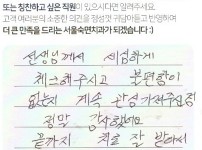 또는 칭찬하고 싶은 직원이 있으시다면 알려주세요.
고객 여러분의 소중한 의견을 정성껏 귀담아듣고 반영하며
더 큰 만족을 드리는 서울숙면치과가 되겠습니다 :)
선생님께서 세심하게
체크해주시고 불편함이
없는지 계속 관심 가져주셔서
정말 감사했어요
끝까지 치료 잘 받아서